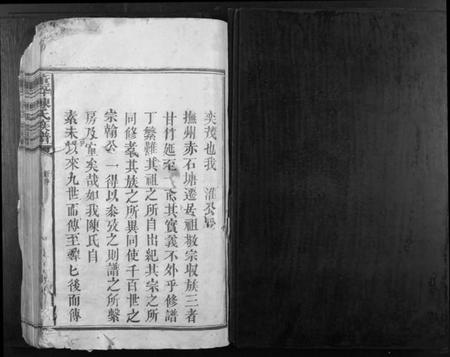 奕茂也我 淮公房
撫州赤石塘遷居祖敬宗收族三者
甘竹延至 其實義不外乎修譜
丁繁難其祖之所自出紀其宗之所
同修羣其族之所異同使千百世之
宗翰公 一得以泰攷之則譜之所繫
房及 矣哉如我陳氏自
素未以來九世而傳至 七後而傳
陳氏